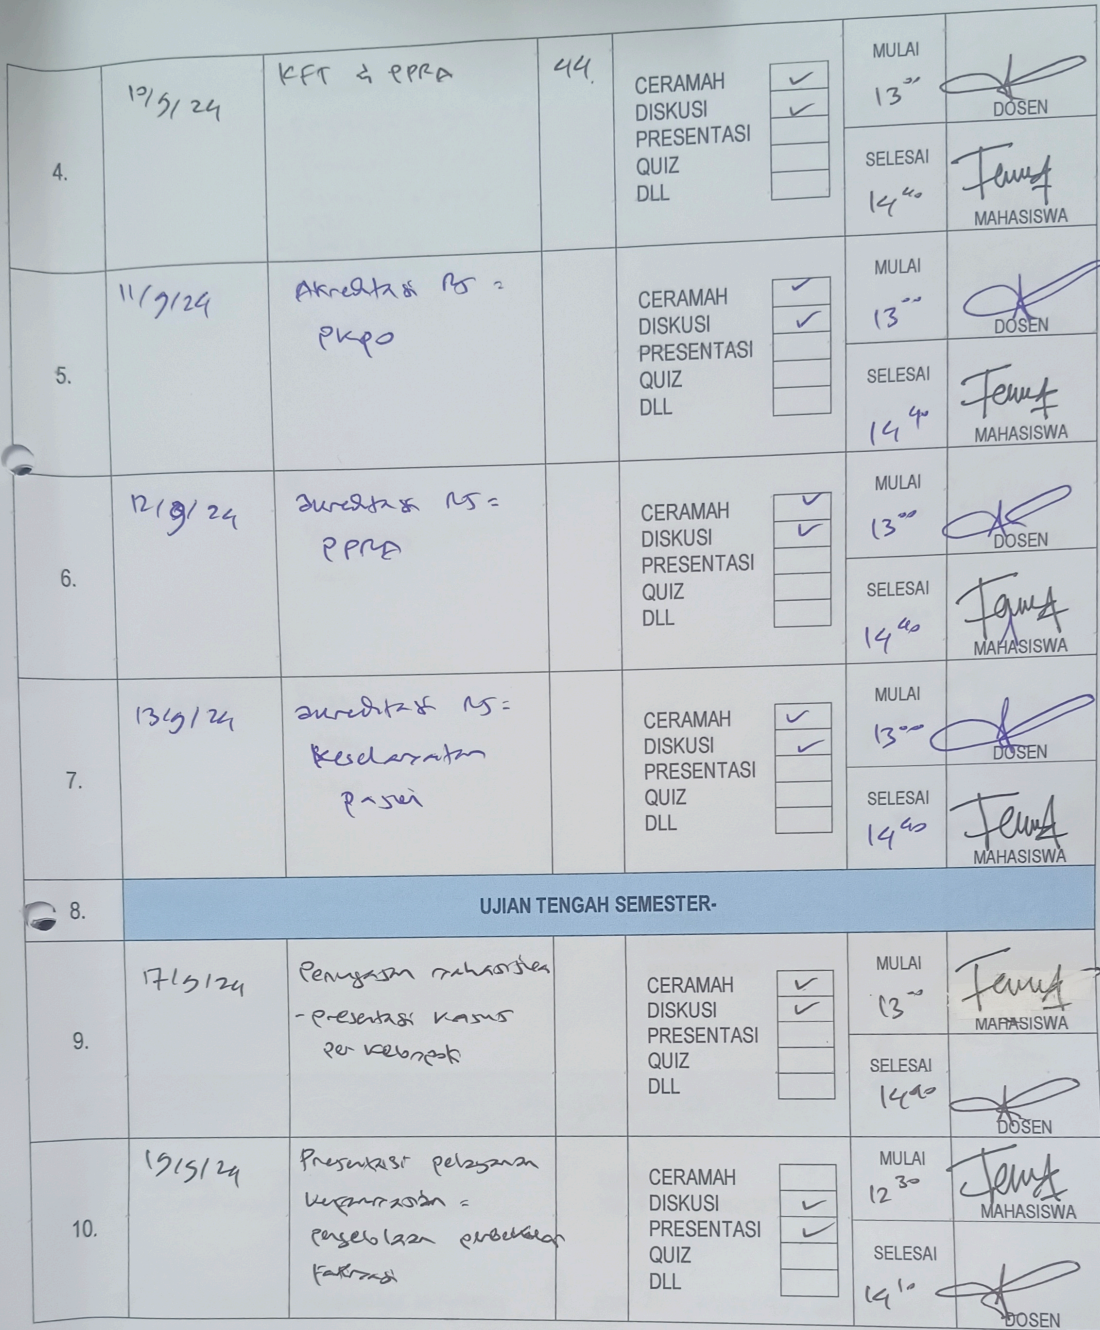 4.
10/9/24
KFT & PPRA
44.
CERAMAH ✓
DISKUSI ✓
PRESENTASI
QUIZ
DLL
MULAI
13⁰⁰
DOSEN
SELESAI
14⁴⁰
MAHASISWA
5.
11/9/24
Akreditasi RS =
PKPO
CERAMAH ✓
DISKUSI ✓
PRESENTASI
QUIZ
DLL
MULAI
13⁰⁰
DOSEN
SELESAI
14⁴⁰
MAHASISWA
6.
12/9/24
akreditasi RS =
PPRA
CERAMAH ✓
DISKUSI ✓
PRESENTASI
QUIZ
DLL
MULAI
13⁰⁰
DOSEN
SELESAI
14⁴⁰
MAHASISWA
7.
13/9/24
akreditasi RS =
Keselamatan
pasien
CERAMAH ✓
DISKUSI ✓
PRESENTASI
QUIZ
DLL
MULAI
13⁰⁰
DOSEN
SELESAI
14⁴⁰
MAHASISWA
8.
UJIAN TENGAH SEMESTER-
9.
17/9/24
Penugasan mahasiswa
- presentasi kasus
per kelompok
CERAMAH ✓
DISKUSI ✓
PRESENTASI
QUIZ
DLL
MULAI
13⁰⁰
MAHASISWA
SELESAI
14⁴⁰
DOSEN
10.
19/9/24
Presentasi pelayanan
kefarmasian =
pengelolaan perbekalan
farmasi
CERAMAH
DISKUSI ✓
PRESENTASI ✓
QUIZ
DLL
MULAI
12³⁰
MAHASISWA
SELESAI
14¹⁰
DOSEN